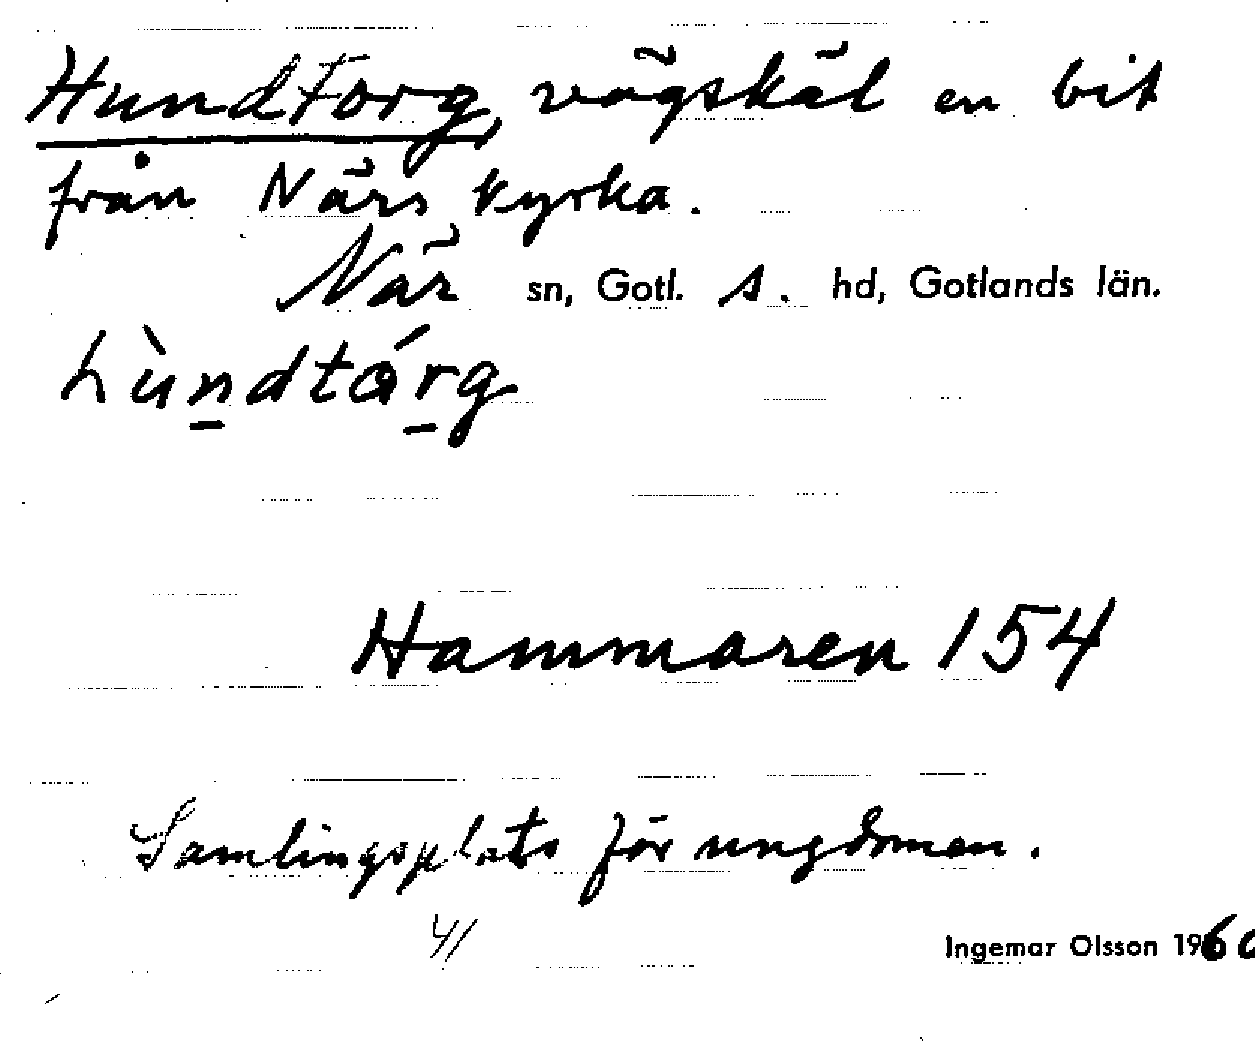 HundTorg, vägskäl en bit
från Närs kyrka.
När sn, Gotl. s. hd, Gotlands län.
hùndtárg
Hammaren 154
Samlingsplats för ungdomen.
41
Ingemar Olsson 1960